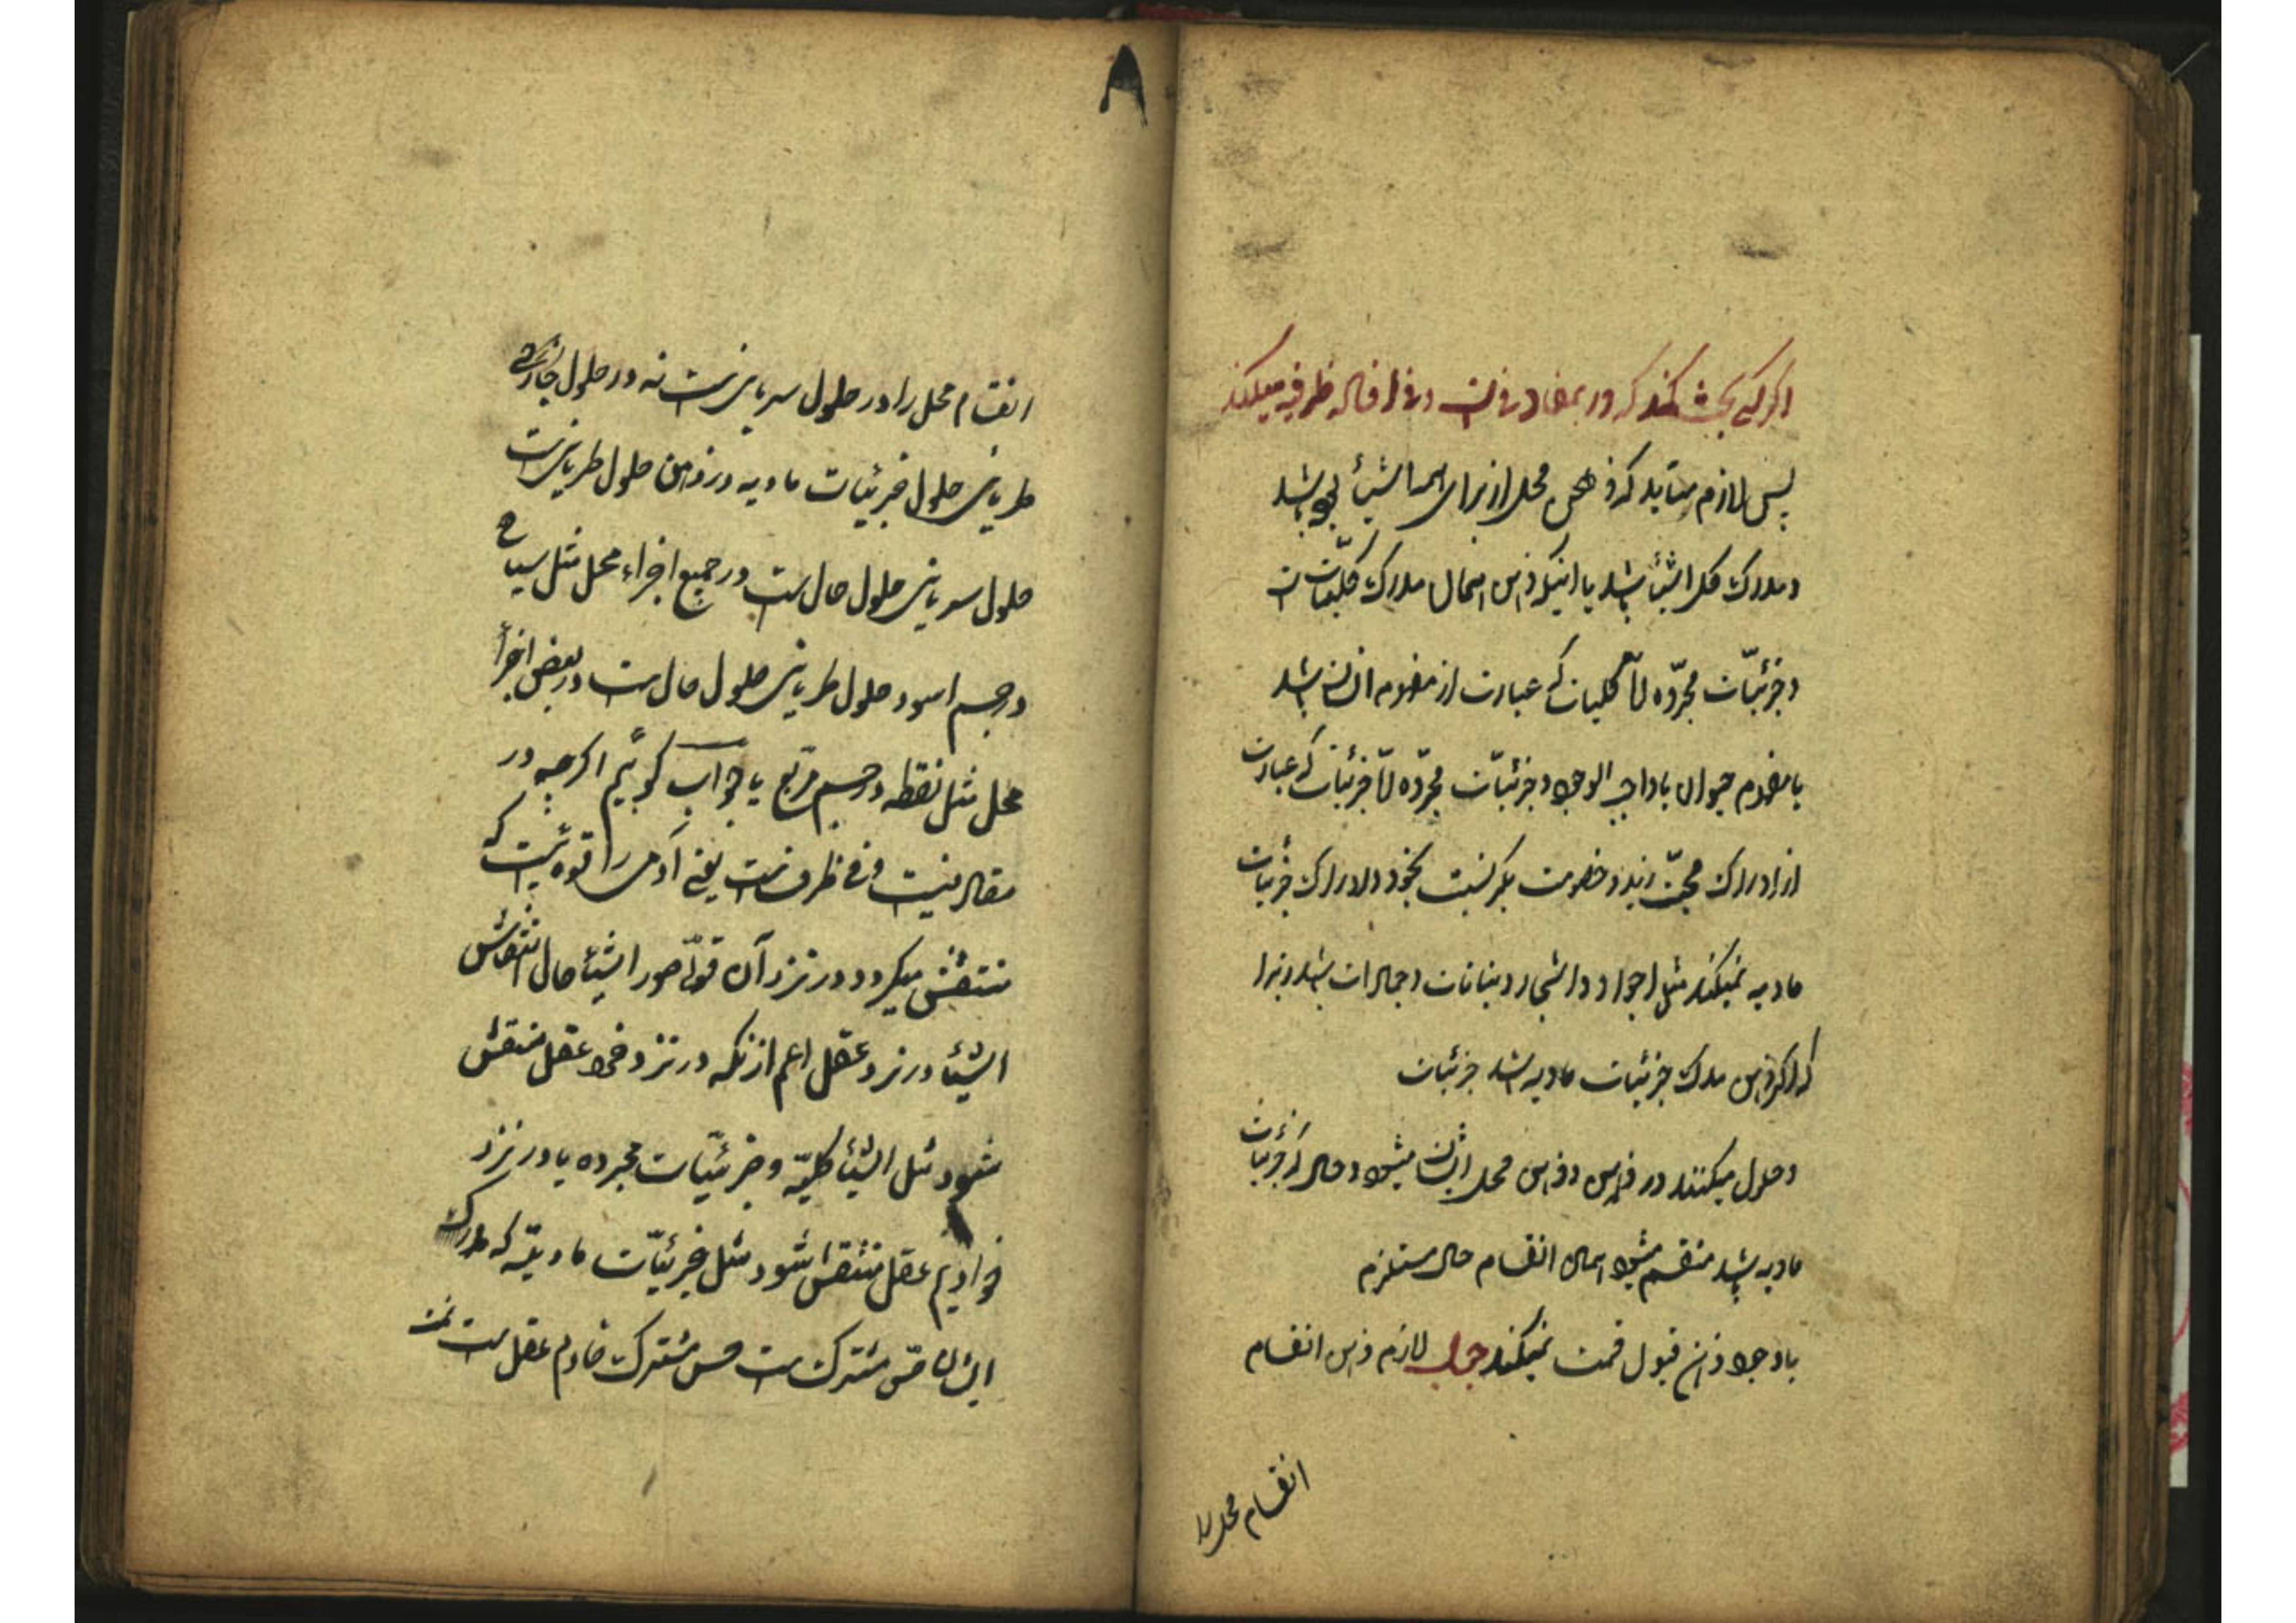 اگر کسی بحث کند که در بمفاد فی است و فی افاده ظرفیه میکند
پس لازم میآید که ذهن محل از برای همه اشیأ بوده باشد
و مدرک کل اشیأ باشد با اینکه ذهن انسان مدرک کلیات است
و جزئیّات مجرّده امّا کلیات که عبارت از مفهوم انسان باشد
یا مفهوم حیوان یا واجب الوجود و جزئیّات مجرّده امّا جزئیات که عبارت
از ادراک محبّت زید و خصومت بکر نسبت بخود و ادراک جزئیات
مادیه نمیکند مثل احجار و اشجار و نباتات و جمادات باشد زیرا
که اگر ذهن مدرک جزئیات مادیه باشد جزئیات
و حلول میکنند در ذهن و ذهن محل ایشان میشود و حال که جزئیات
مادیه باشد منقسم میشود انسان انقسام حال مستلزم
با وجود ذهن قبول قسمت نمیکند جواب لازم ذهن انقسام
انقسام محل را
۸
انقسام محل را در حلول سریانی است نه در حلول
طریانی حلول جزئیات مادیه در ذهن حلول طریانی است
حلول سریانی حلول حال است در جمیع اجزاء محل مثل سیاهی
در جسم اسود حلول طریانی حلول حال است در بعض اجزأ
محل مثل نقطه در جسم مربّع یا جواب گوئیم اگرچه در
مقاله نیست و فی ظرف است یعنی آدمی را قوه ئیست که
منتقش میگردد در نزد آن قوّه صور اشیأ حال انتقاش
اشیأ در نزد عقل اعم از آنکه در نزد خود عقل منتقش
شود مثل اشیأ کلیّه و جزئیّات مجرده یا در نزد
خوادیم عقل منتقش شود مثل جزئیّات مادیّه که مدرک
ایشان حسّ مشترک است و حس مشترک خادم عقل است